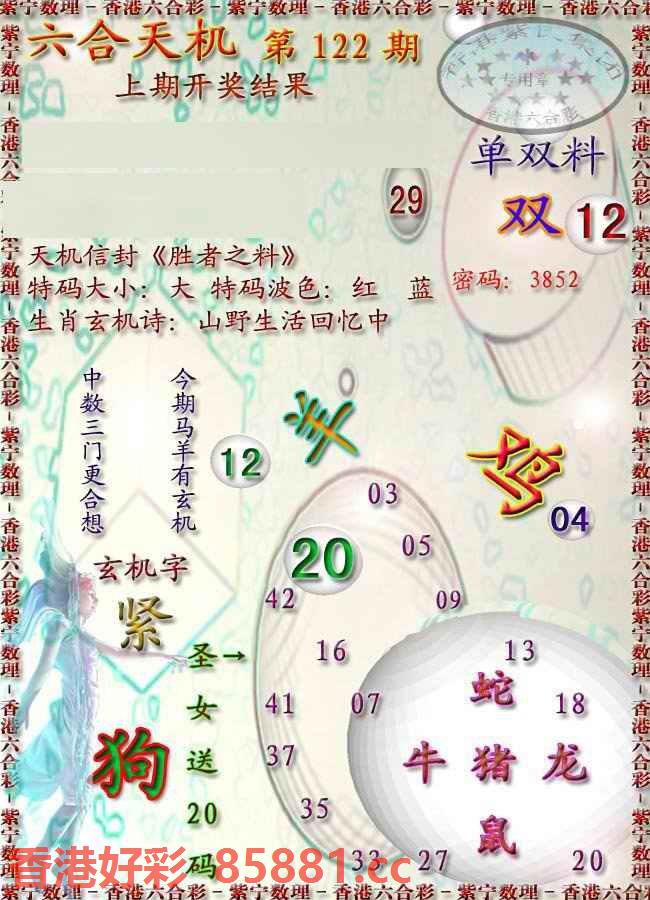 紫宁数理－香港六合彩－紫宁数理－香港六合彩－紫宁数理－香港六合彩
六合天机 第 122 期
上期开奖结果
香港紫氏集团
专用章
香港六合彩
单双料
29
双 12
天机信封《胜者之料》
特码大小：大 特码波色：红 蓝
密码：3852
生肖玄机诗：山野生活回忆中
今期马羊有玄机
中数三门更合想
羊
12
鸡
04
03
20
05
42
09
玄机字
紧
圣女送20码
→
16
13
41
07
蛇
18
狗
37
牛 猪 龙
35
鼠
33
27
20
香港好彩 85881.cc
紫宁数理－香港六合彩－紫宁数理－香港六合彩－紫宁数理－香港六合彩